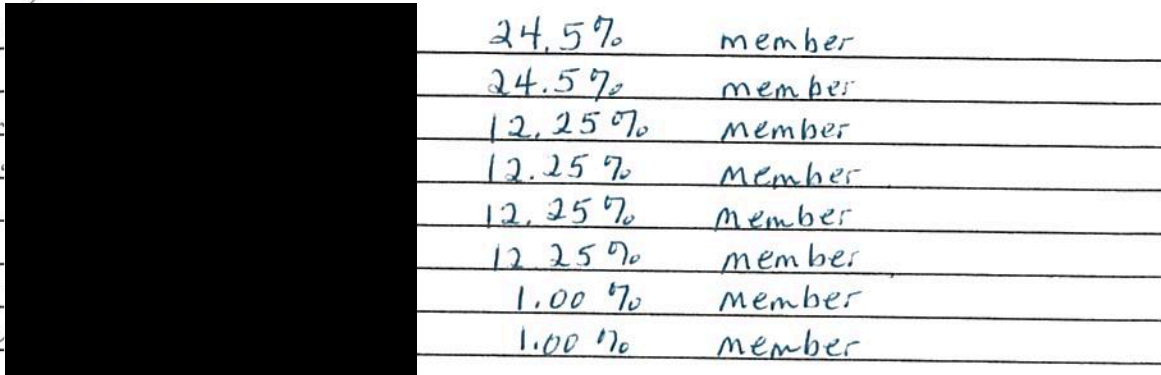 24.5% member
24.5% member
12.25% member
12.25% member
12.25% member
12 25% member
1.00 % member
1.00 % member